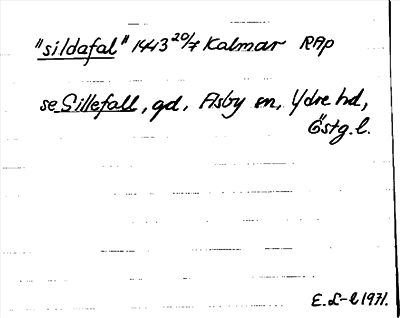 "sildafal" 1443 20/7 Kalmar RAp
se Sillefall, gd, Asby sn, Ydre hd,
Östg. l.
E. L-l 1971.